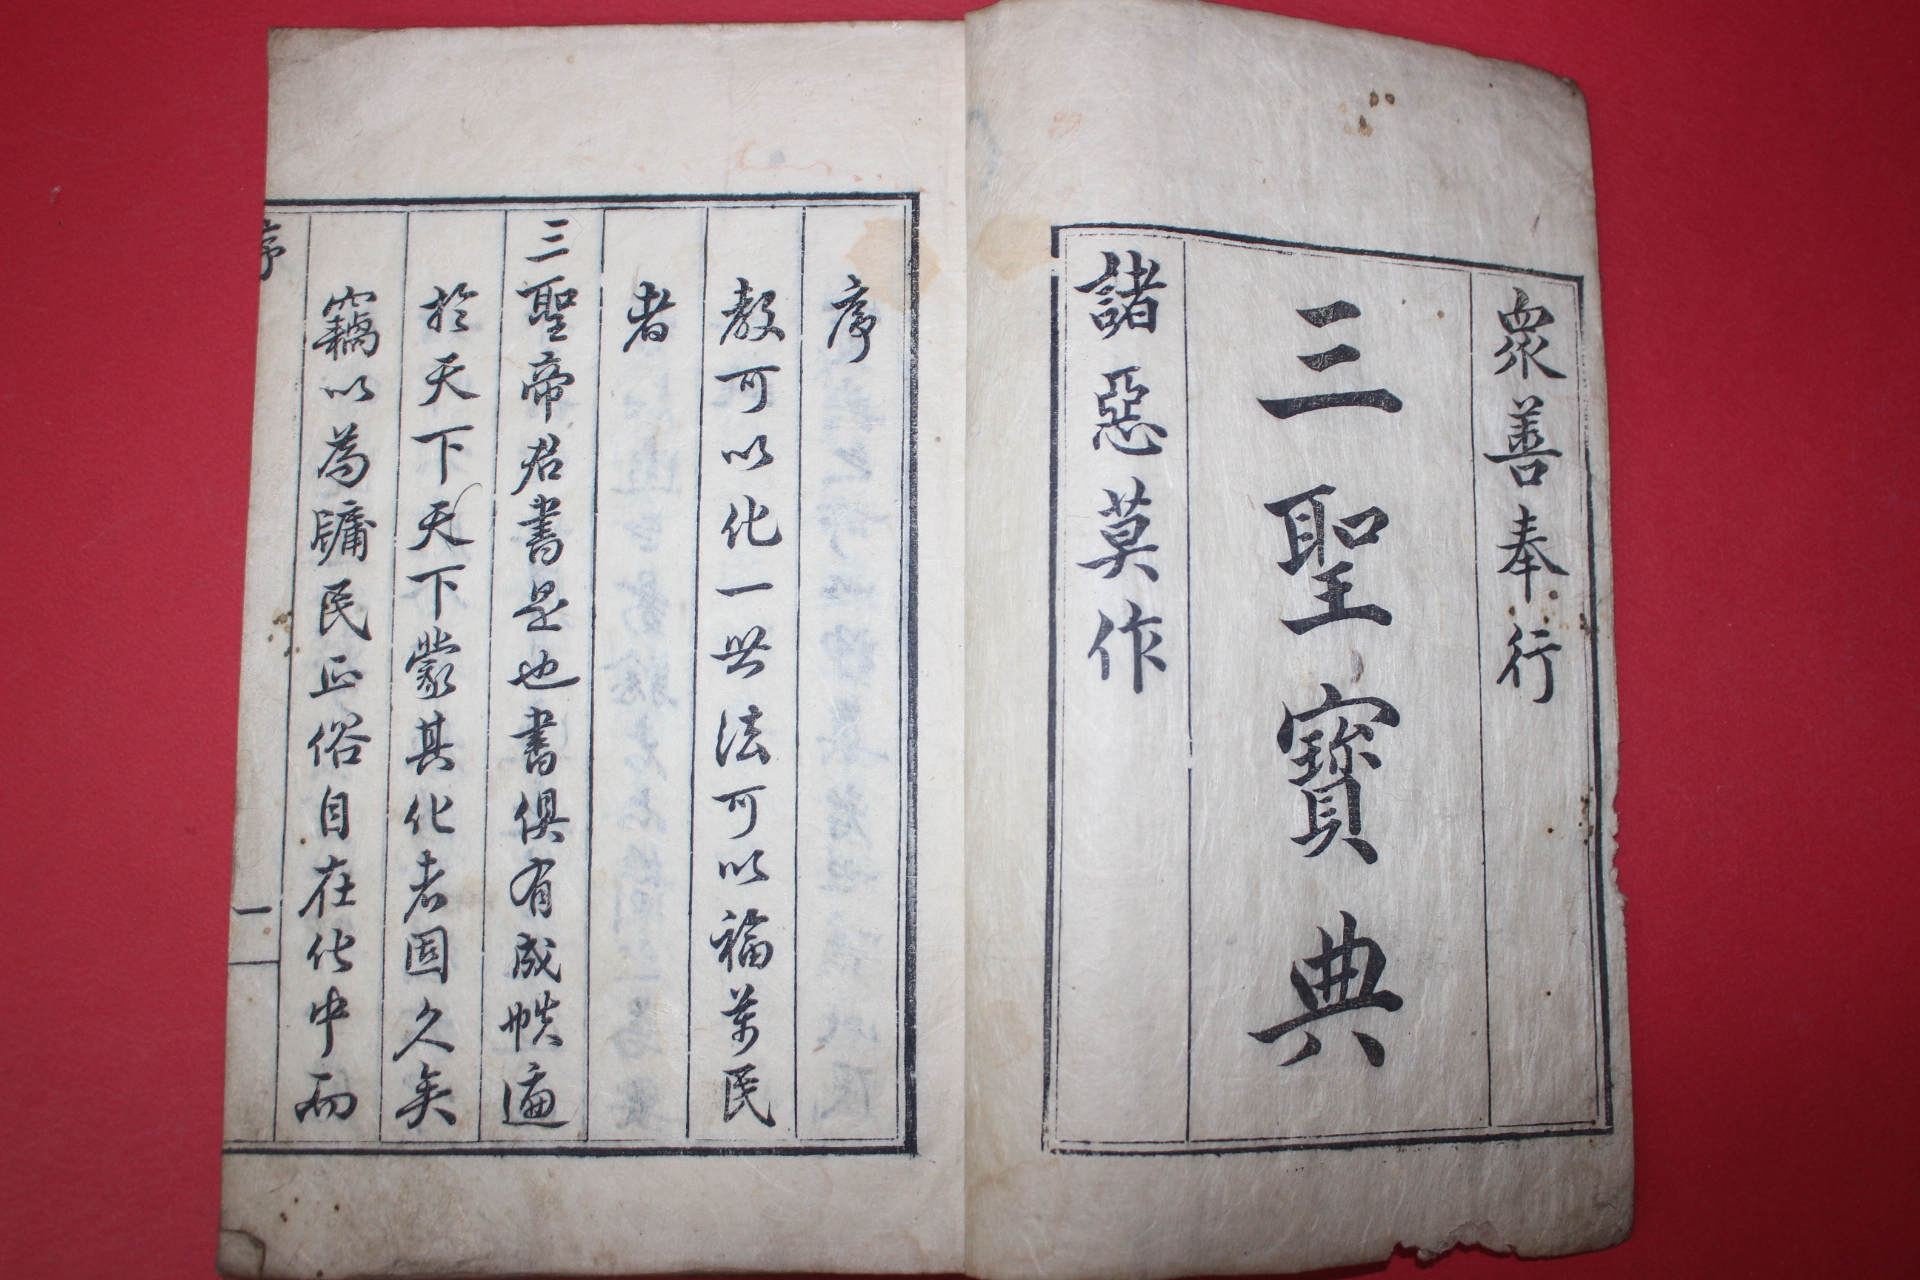 衆善奉行
三聖寶典
諸惡莫作
序
敎可以化一世法可以福萬民
者
三聖帝君書是也書俱有成帙遍
於天下天下蒙其化者固久矣
竊以為牖民正俗自在化中而
序
一